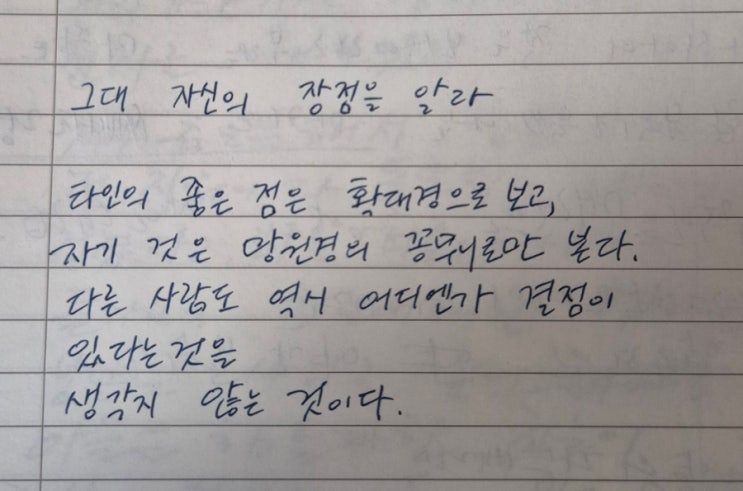 그대 자신의 장점을 알라
타인의 좋은 점은 확대경으로 보고,
자기 것은 망원경의 꽁무니로만 본다.
다른 사람도 역시 어디엔가 결점이
있다는 것을
생각지 않는 것이다.